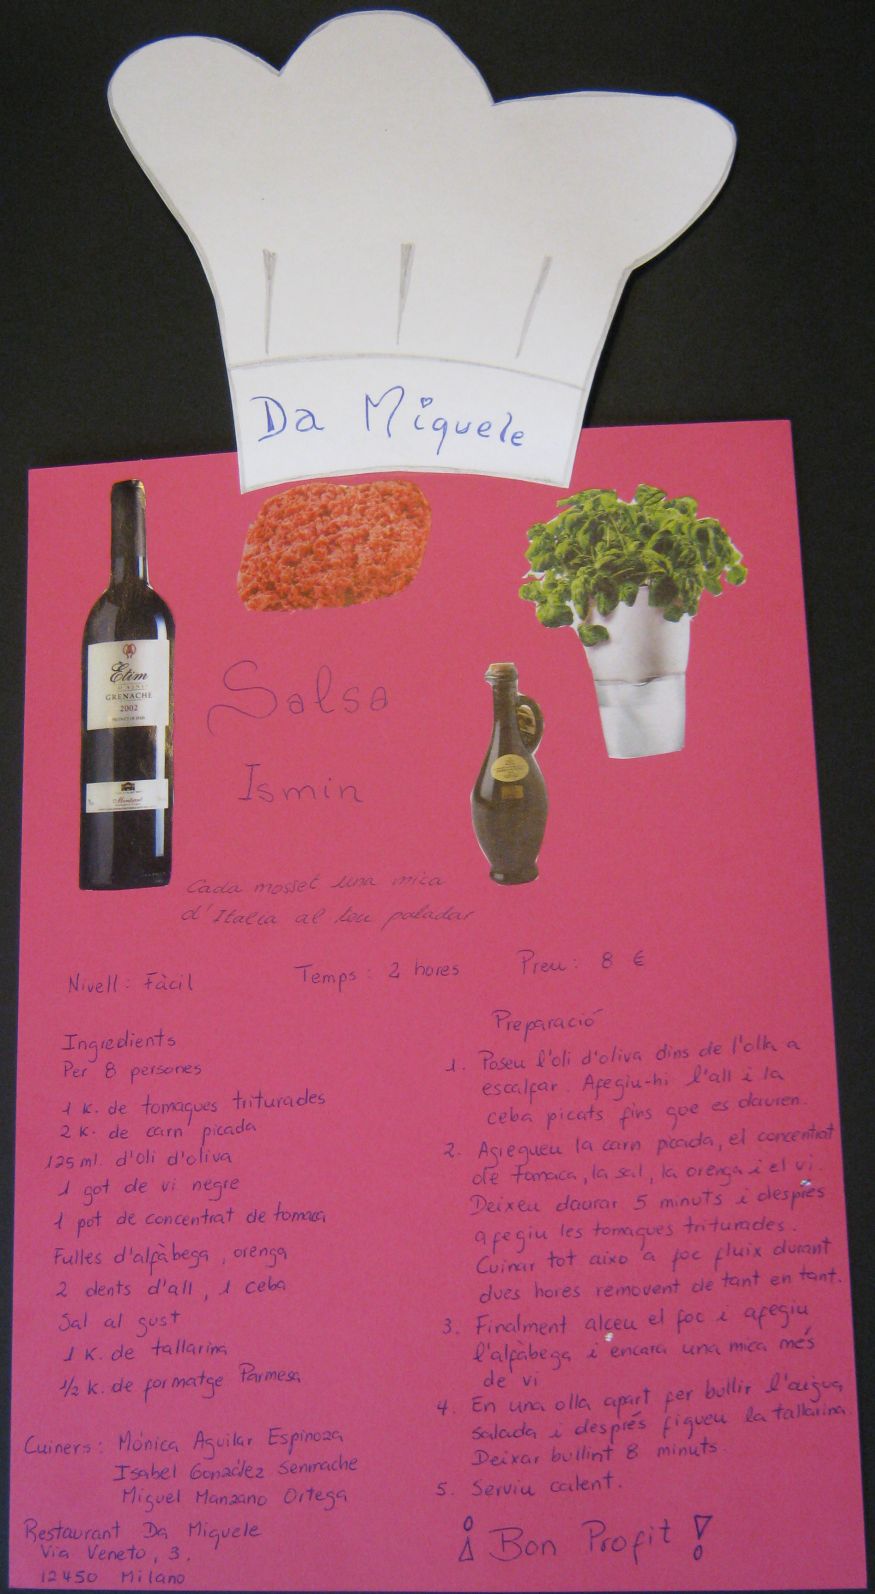 Da Miquele
Etim
GRENACHE
2002
Salsa
Ismin
Cada mosset una mica
d'Italia al teu paladar
Nivell: Fàcil
Temps: 2 hores
Preu: 8 €
Ingredients
Per 8 persones
1 K. de tomaques triturades
2 K. de carn picada
125 ml. d'oli d'oliva
1 got de vi negre
1 pot de concentrat de tomaca
Fulles d'alfàbega, orenga
2 dents d'all, 1 ceba
Sal al gust
1 K. de tallarina
1/2 K. de formatge Parmesa
Cuiners: Mónica Aguilar Espinoza
Isabel González Senmache
Miguel Manzano Ortega
Restaurant Da Miquele
Via Veneto, 3.
12450 Milano
Preparació
1. Poseu l'oli d'oliva dins de l'olla a
escalfar. Afegiu-hi l'all i la
ceba picats fins que es dauren.
2. Agregueu la carn picada, el concentrat
de tomaca, la sal, la orenga i el vi.
Deixeu daurar 5 minuts i després
afegiu les tomaques triturades.
Cuinar tot aixo a foc fluix durant
dues hores removent de tant en tant.
3. Finalment alceu el foc i afegiu
l'alfàbega i encara una mica més
de vi
4. En una olla apart fer bullir l'aigua
salada i després fiqueu la tallarina.
Deixar bullint 8 minuts.
5. Serviu calent.
¡Bon Profit!